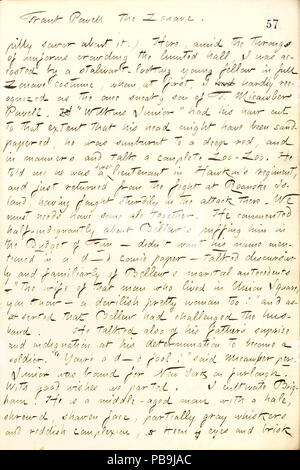 Frank Powell the Zouave.
57
pilly savor about it.) Here, amid the throngs
of uniforms crowding the limited hall, I was ac-
costed by a stalwart-looking young fellow in full
Zouave costume, whom at first, I hardly rec-
ognized as the once sneaky son of Micawber
Powell. "Wilkins Junior" had his hair cut
to that extent that his head might have been sand
papered, he was sunburnt to a deep red, and
in manners and talk a complete Zoo-Zoo. He
told me he was a Lieutenant in Hawkins's regiment,
and just returned from the fight at Roanoke Is-
land having fought sturdily in the attack there. We
must needs have some ale together. He commented
half-indignantly about Bellew's puffing him in
the Budget of Fun — didn't want his name men-
tioned in a d—d comic paper — talked discursive-
ly and familiarly of Bellew's marital antecedents
"the wife of that man who lived in Union Square,
you know — a devilish pretty woman too!" and as-
serted that Bellew had challenged the hus-
band. He talked also of his father's surprise
and indignation at his determination to become a
soldier. "You're a d—d fool!" said Micawber per.
Junior was bound for New York on furlough.
With good wishes we parted. I cultivate Brig-
ham. He is a middle-aged man with a hale,
shrewd, shaven face, partially gray whiskers
and reddish complexion, keen of eyes and brisk
alamy
Image ID: PB9JAC
www.alamy.com